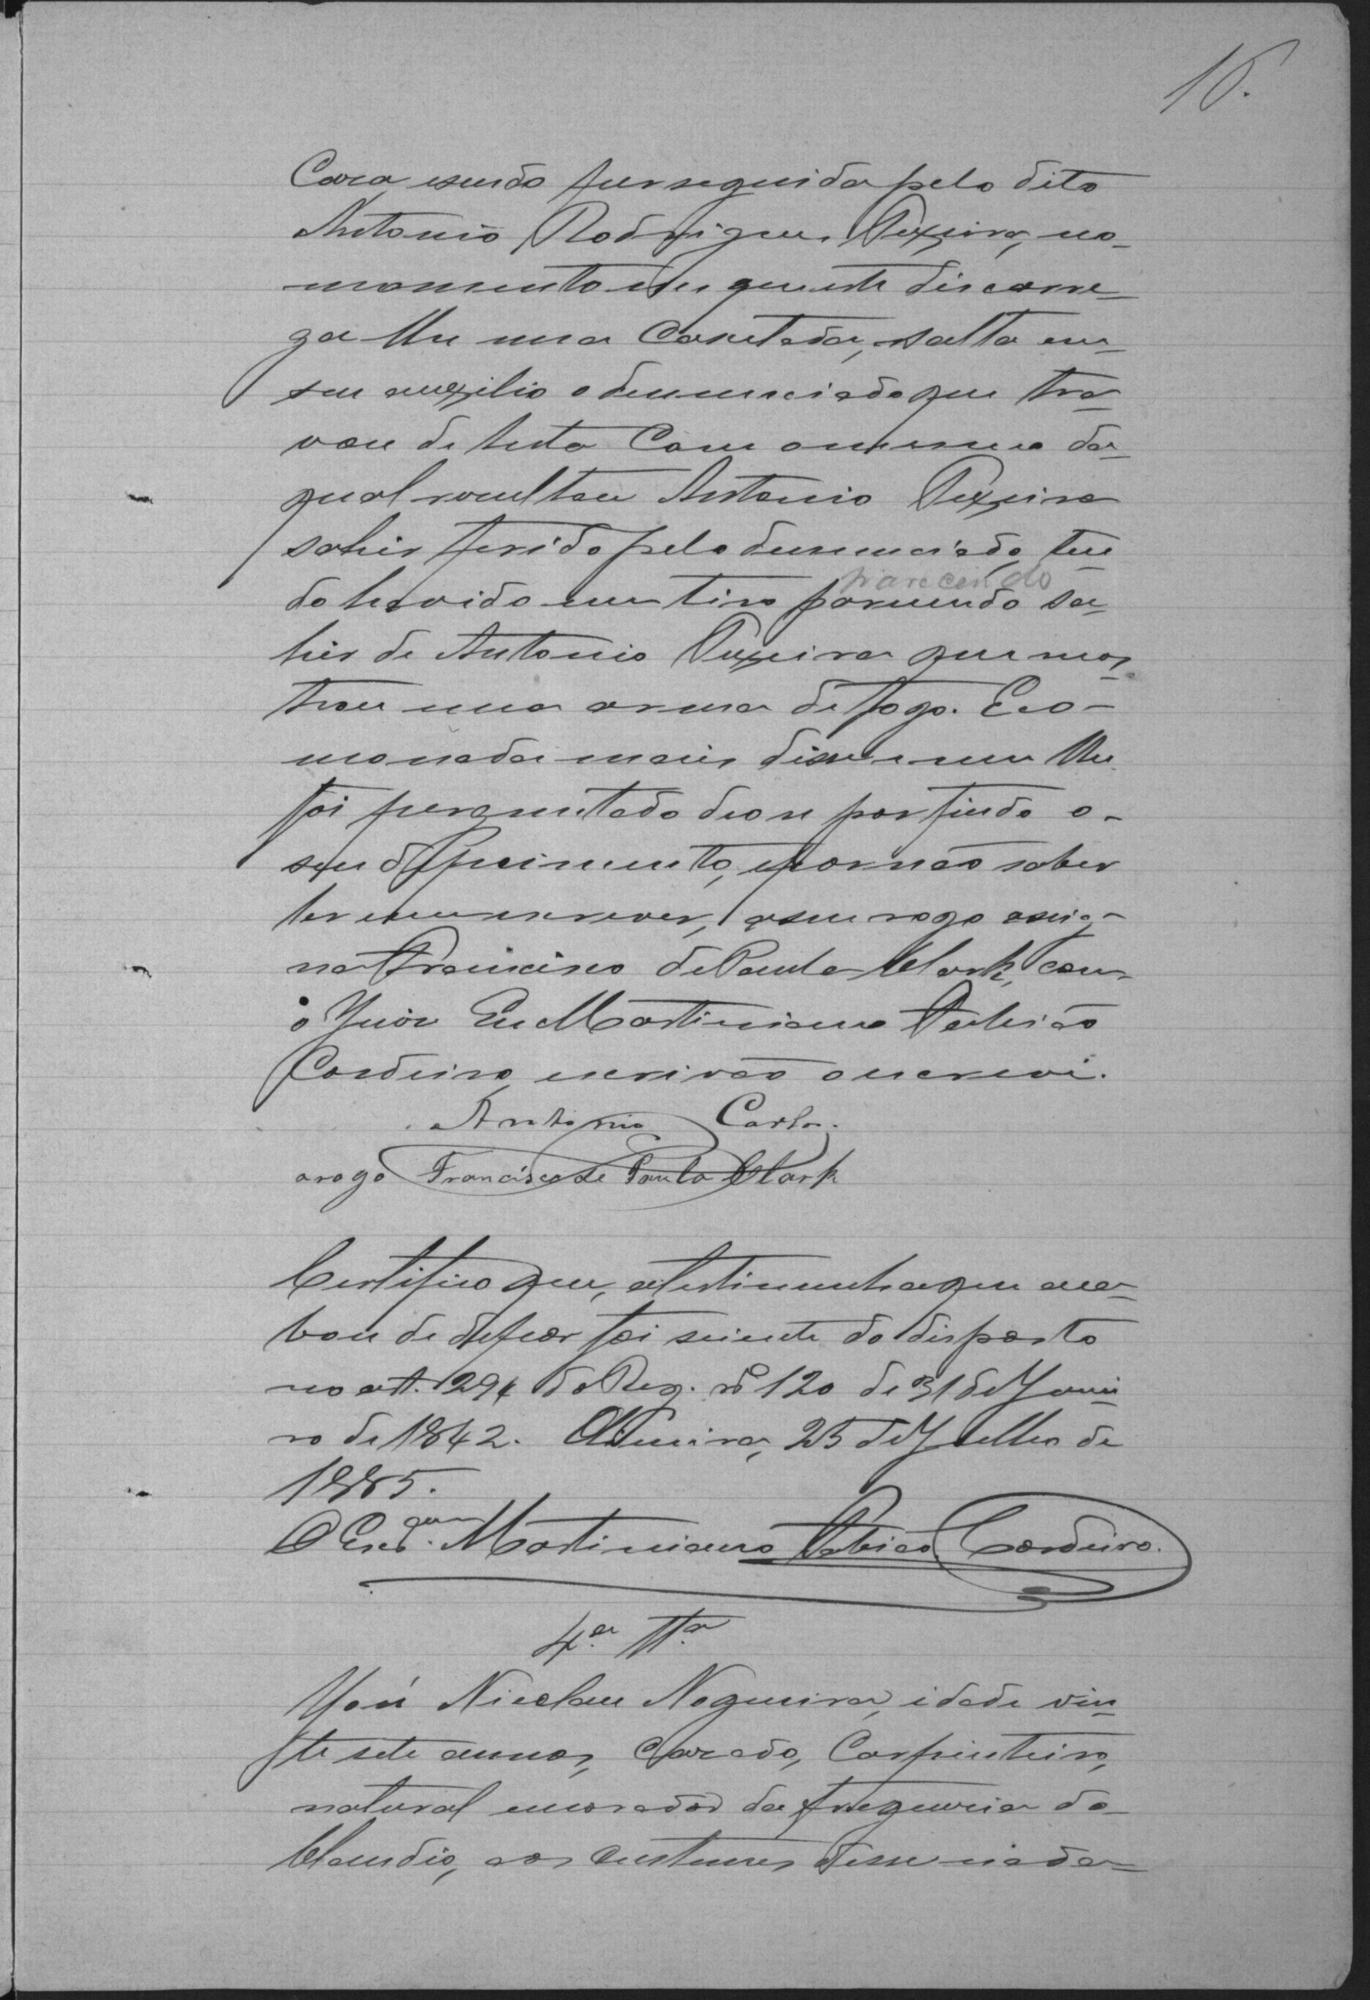 16.
Caza e sendo perseguida pelo dito
Antonio Rodrigues Teixeira, no
momento em que este discarre-
ga lhe uma cacetada, salta em
seu auxilio o denunciado que tra-
vou de luta com o mesmo da
qual resultou Antonio Teixeira
sahir ferido pelo denunciado, ten
do havido um tiro parecendo sa-
parecendo
hir de Antonio Teixeira que mos-
trou uma arma de fogo. E co-
mo nada mais disse e nem lhe
foi perguntado deo se por findo o
seu depoimento, e por não saber
ler e nem escrever, a seu rogo assig-
na Francisco de Paula Clark, com
o Juiz Eu Martiniano Fabião
Cordeiro, escrivão o escrevi.
Antonio Carlos.
arogo Francisco de Paula Clark
Certifico que, a testimunha que aca-
bou de depor foi sciente do disposto
no art. 294 do Reg. nº 120 de 31 de Janei
ro de 1842. Oliveira, 25 de Julho de
1885.
O Escº. Martiniano Fabião Cordeiro.
4.ª Tª
José Nicolau Nogueira, idade vin
te sete annos, Cazado, Carpinteiro,
natural e morador da freguesia do
Claudio, aos custumes disse nada